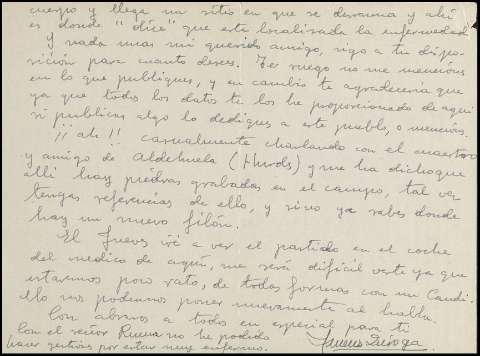 cuerpo y llega un sitio en que se derrama y ahí
es donde "dice" que esta localizada la enfermedad
Y nada mas mi querido amigo, sigo a tu dispo-
sición para cuanto desees. Te ruego no me menciones
en lo que publiques, y en cambio te agradeceria que
ya que todos los datos te los he proporcionado de aquí
si publicas algo lo dediques a este pueblo, o menciones.
¡¡ ah !! casualmente charlando con el maestro
y amigo de Aldehuela (Hurdes) y me ha dicho que
alli hay piedras grabadas en el campo, tal vez
tengas referencias de ello, y sino ya sabes donde
hay un nuevo filón.
El Jueves iré a ver el partido en el coche
del medico de aquí, me será difícil verte ya que
estaremos poco rato, de todas formas con un Candi-
ello nos podemos poner nuevamente al habla
Con abrazos a todos en especial para ti
Con el señor no he podido
hacer gestiones por estar muy enfermo.